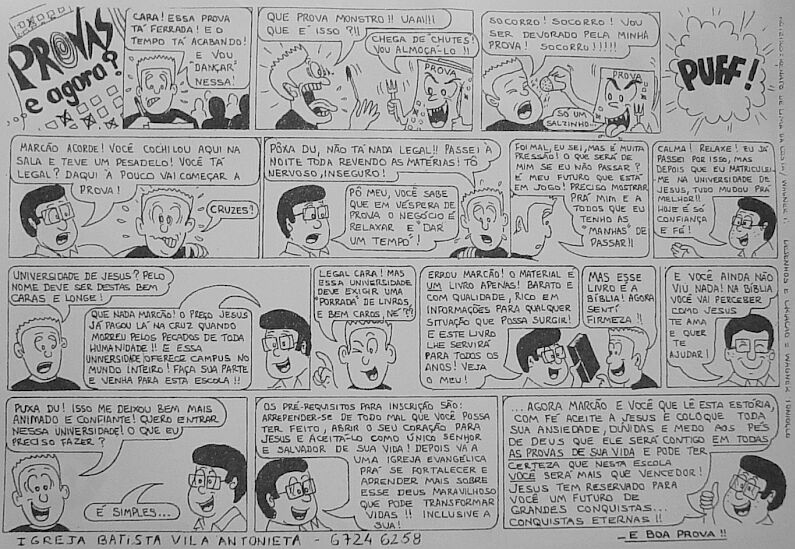 PROVAS
e agora?
CARA! ESSA PROVA
TÁ FERRADA! E O
TEMPO TÁ ACABANDO!
E VOU
"DANÇAR"
NESSA!
QUE PROVA MONSTRO!! UAAIIII
QUE É ISSO?!!
CHEGA DE "CHUTES"!
VOU ALMOÇÁ-LO!!
PROVA
SOCORRO! SOCORRO! VOU
SER DEVORADO PELA MINHA
PROVA! SOCORRO!!!!!
PROVA
SÓ UM
SALZINHO...
PUFF!
MARCÃO ACORDE! VOCÊ COCHILOU AQUI NA
SALA E TEVE UM PESADELO! VOCÊ TÁ
LEGAL? DAQUI À POUCO VAI COMEÇAR A
PROVA!
CRUZES!
PÔXA DU, NÃO TÁ NADA LEGAL!! PASSEI À
NOITE TODA REVENDO AS MATÉRIAS! TÔ
NERVOSO, INSEGURO!
PÔ MEU, VOCÊ SABE
QUE EM VÉSPERA DE
PROVA O NEGÓCIO É
RELAXAR E "DAR
UM TEMPO"!
FOI MAL, EU SEI, MAS É MUITA
PRESSÃO! O QUE SERÁ DE
MIM SE EU NÃO PASSAR?
É MEU FUTURO QUE ESTÁ
EM JOGO! PRECISO MOSTRAR
PRÁ MIM E A
TODOS QUE EU
TENHO AS
"MANHAS" DE
PASSAR!!
CALMA! RELAXE! EU JÁ
PASSEI POR ISSO, MAS
DEPOIS QUE EU MATRICULEI-
-ME NA UNIVERSIDADE DE
JESUS, TUDO MUDOU PRÁ
MELHOR!!
HOJE É SÓ
CONFIANÇA
E FÉ!
UNIVERSIDADE DE JESUS? PELO
NOME DEVE SER DESTAS BEM
CARAS E LONGE!
QUE NADA MARCÃO! O PREÇO JESUS
JÁ PAGOU LÁ NA CRUZ QUANDO
MORREU PELOS PECADOS DE TODA
HUMANIDADE!! E ESSA
UNIVERSIDADE OFERECE CAMPUS NO
MUNDO INTEIRO! FAÇA SUA PARTE
E VENHA PARA ESTA ESCOLA!!
LEGAL CARA! MAS
ESSA UNIVERSIDADE
DEVE EXIGIR UMA
"PORRADA" DE LIVROS,
E BEM CAROS, NÉ"?!?
ERROU MARCÃO! O MATERIAL É
UM LIVRO APENAS! BARATO E
COM QUALIDADE, RICO EM
INFORMAÇÕES PARA QUALQUER
SITUAÇÃO QUE POSSA SURGIR!
E ESTE LIVRO
LHE SERVIRÁ
PARA TODOS OS
ANOS! VEJA
O MEU!
MAS ESSE
LIVRO É A
BÍBLIA! AGORA
SENTÍ
FIRMEZA!!
E VOCÊ AINDA NÃO
VIU NADA! NA BÍBLIA
VOCÊ VAI PERCEBER
COMO JESUS
TE AMA
E QUER
TE
AJUDAR!
PUXA DU! ISSO ME DEIXOU BEM MAIS
ANIMADO E CONFIANTE! QUERO ENTRAR
NESSA UNIVERSIDADE! O QUE EU
PRECISO FAZER?
É SIMPLES...
OS PRÉ-REQUISITOS PARA INSCRIÇÃO SÃO:
ARREPENDER-SE DE TODO MAL QUE VOCÊ POSSA
TER FEITO, ABRIR O SEU CORAÇÃO PARA
JESUS E ACEITÁ-LO COMO ÚNICO SENHOR
E SALVADOR DE SUA VIDA! DEPOIS VÁ A
UMA IGREJA EVANGÉLICA
PRÁ SE FORTALECER E
APRENDER MAIS SOBRE
ESSE DEUS MARAVILHOSO
QUE PODE TRANSFORMAR
VIDAS!! INCLUSIVE A
SUA!
...AGORA MARCÃO E VOCÊ QUE LÊ ESTA ESTÓRIA,
COM FÉ ACEITE A JESUS E COLOQUE TODA
SUA ANSIEDADE, DÚVIDAS E MEDO AOS PÉS
DE DEUS QUE ELE SERÁ CONTIGO EM TODAS
AS PROVAS DE SUA VIDA E PODE TER
CERTEZA QUE NESTA ESCOLA
VOCÊ SERÁ MAIS QUE VENCEDOR!
JESUS TEM RESERVADO PARA
VOCÊ UM FUTURO DE
GRANDES CONQUISTAS...
CONQUISTAS ETERNAS!!
...E BOA PROVA!!
IGREJA BATISTA VILA ANTONIETA - 6724 6258